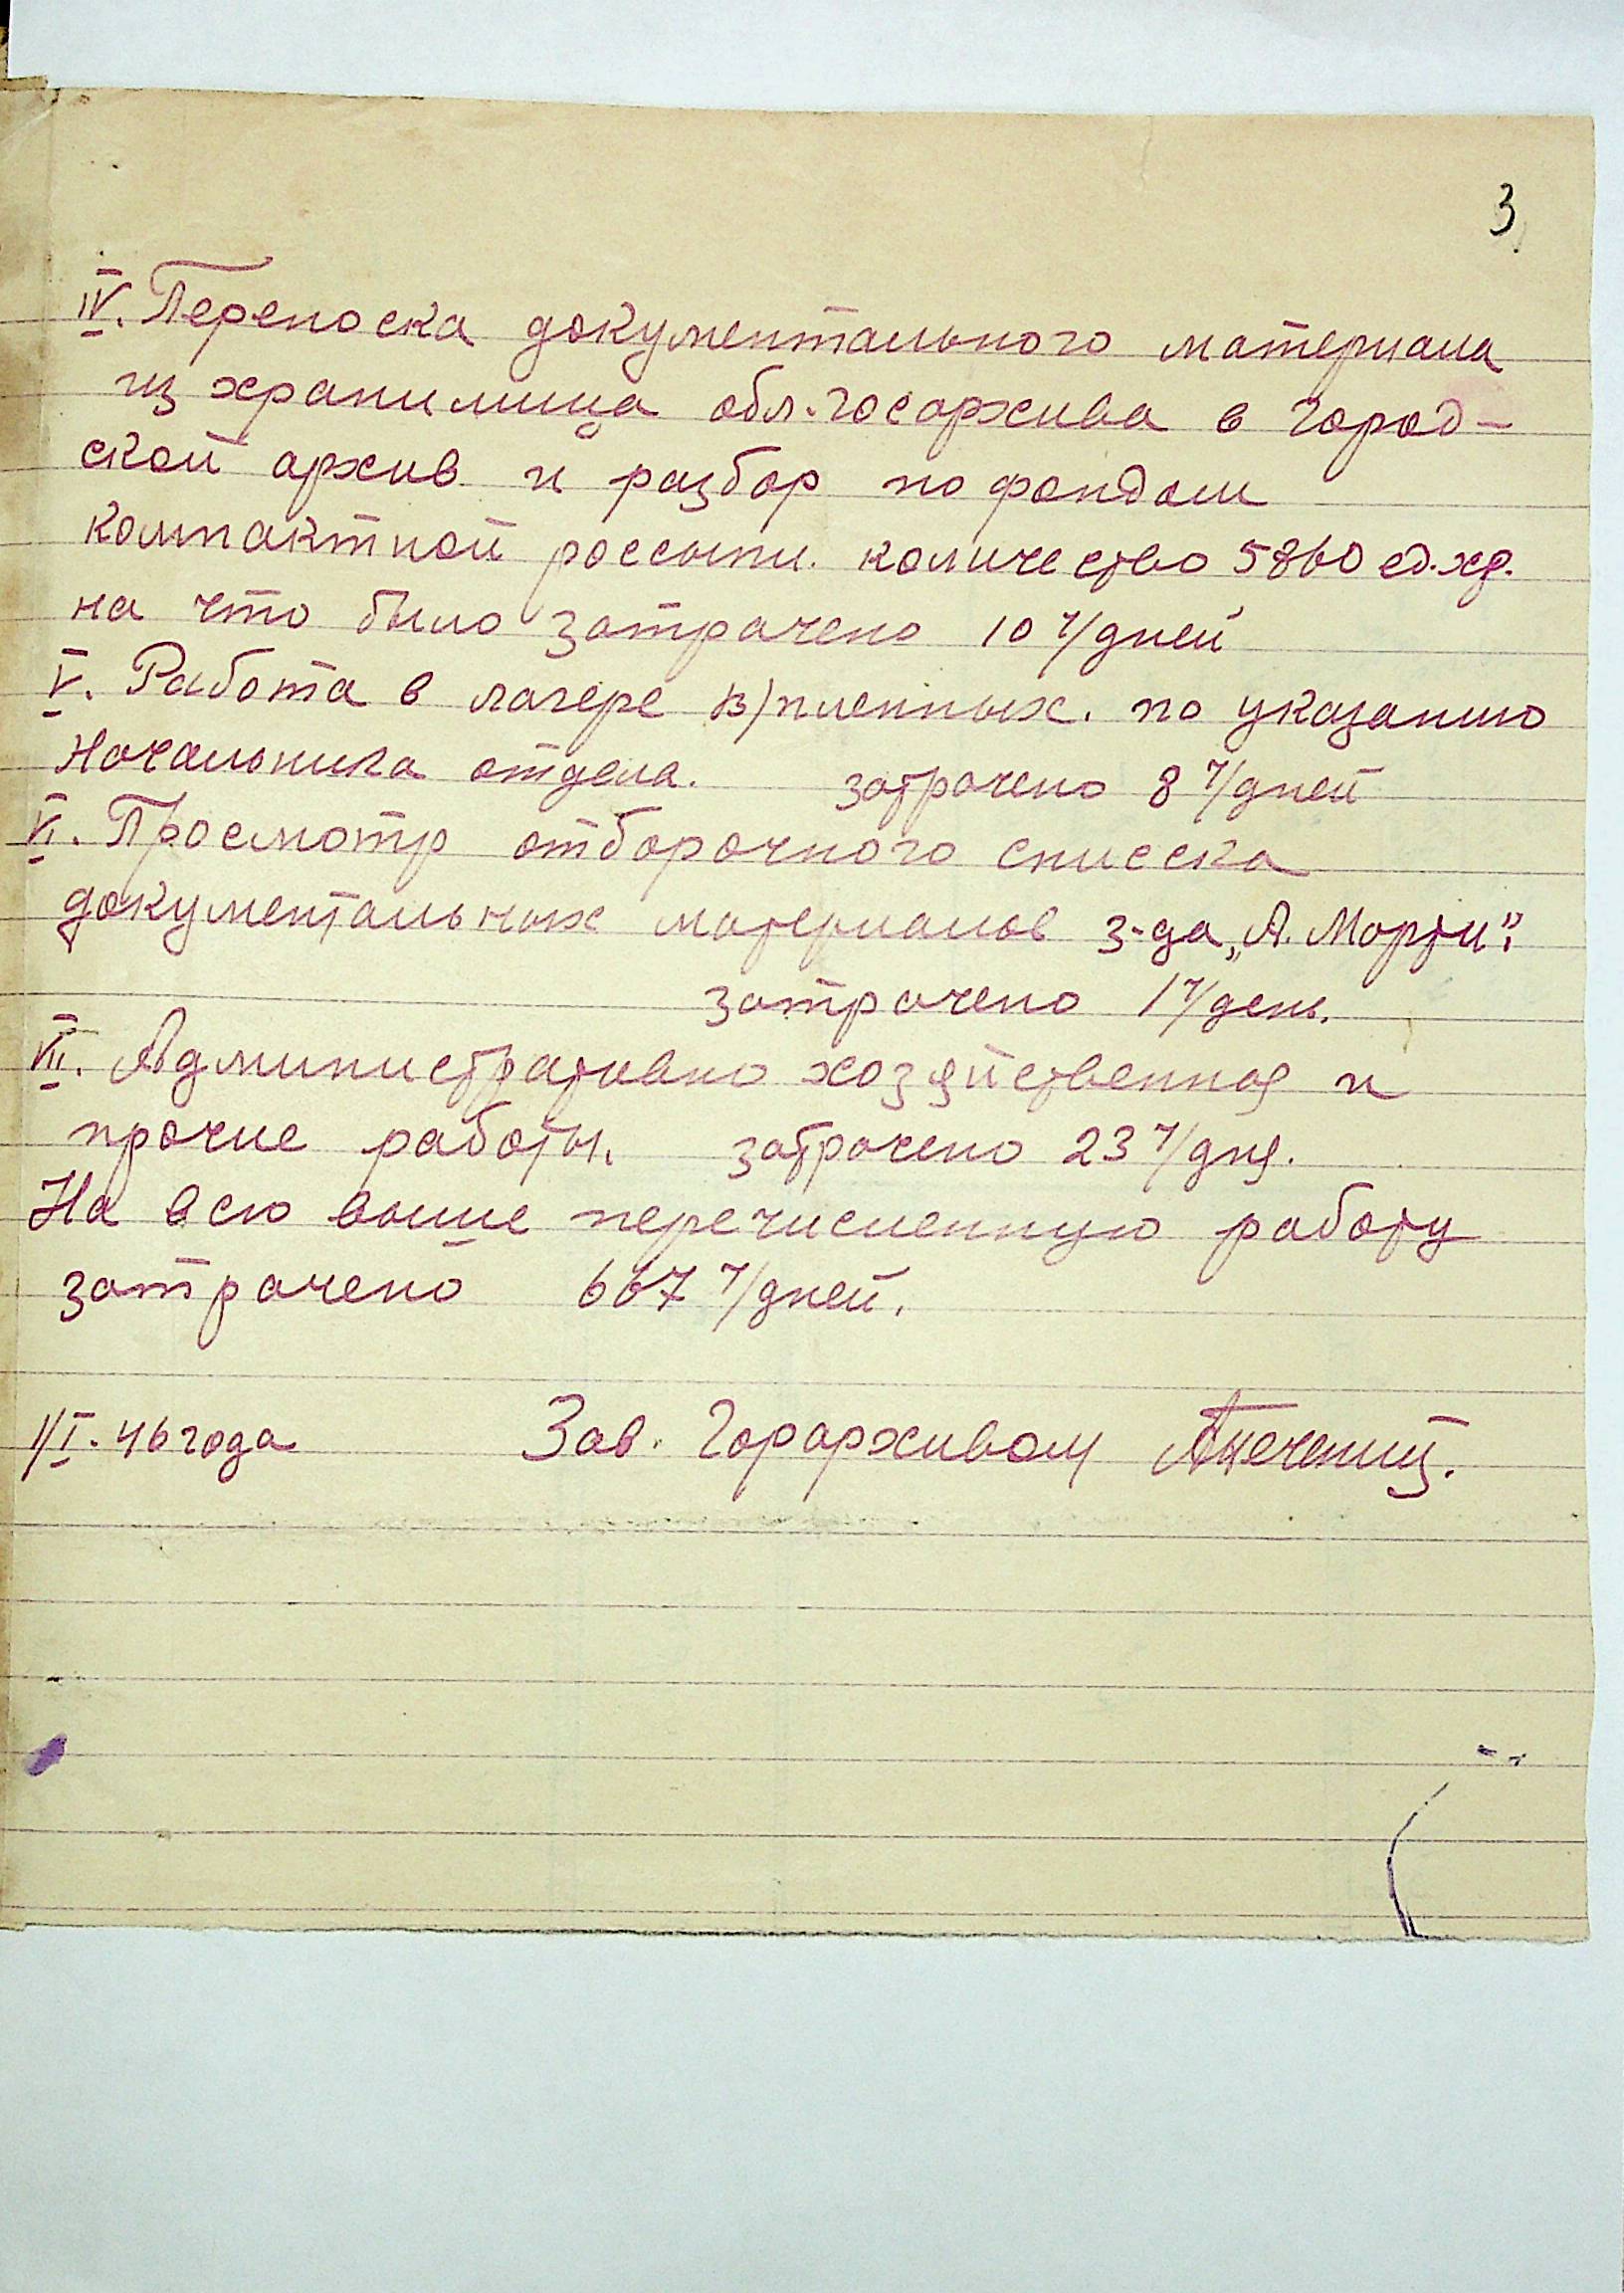 3
IV. Переноска документального материала
из хранилища обл. Госархива в Город-
ской архив и разбор по фондам
компактной россыпи. количество 5860 ед.хр.
на что было затрачено 10 ч/дней
V. Работа в лагере в/пленных. по указанию
Начальника отдела. затрачено 8 ч/дней
VI. Просмотр отборочного списска
документальных материалов з-да „А. Марти".
затрачено 1 ч/день.
VII. Административно хозяйственная и
прочие работы. затрачено 23 ч/дня.
На всю выше перечисленную работу
затрачено 667 ч/дней.
1/I. 46 года Зав. Горархивом